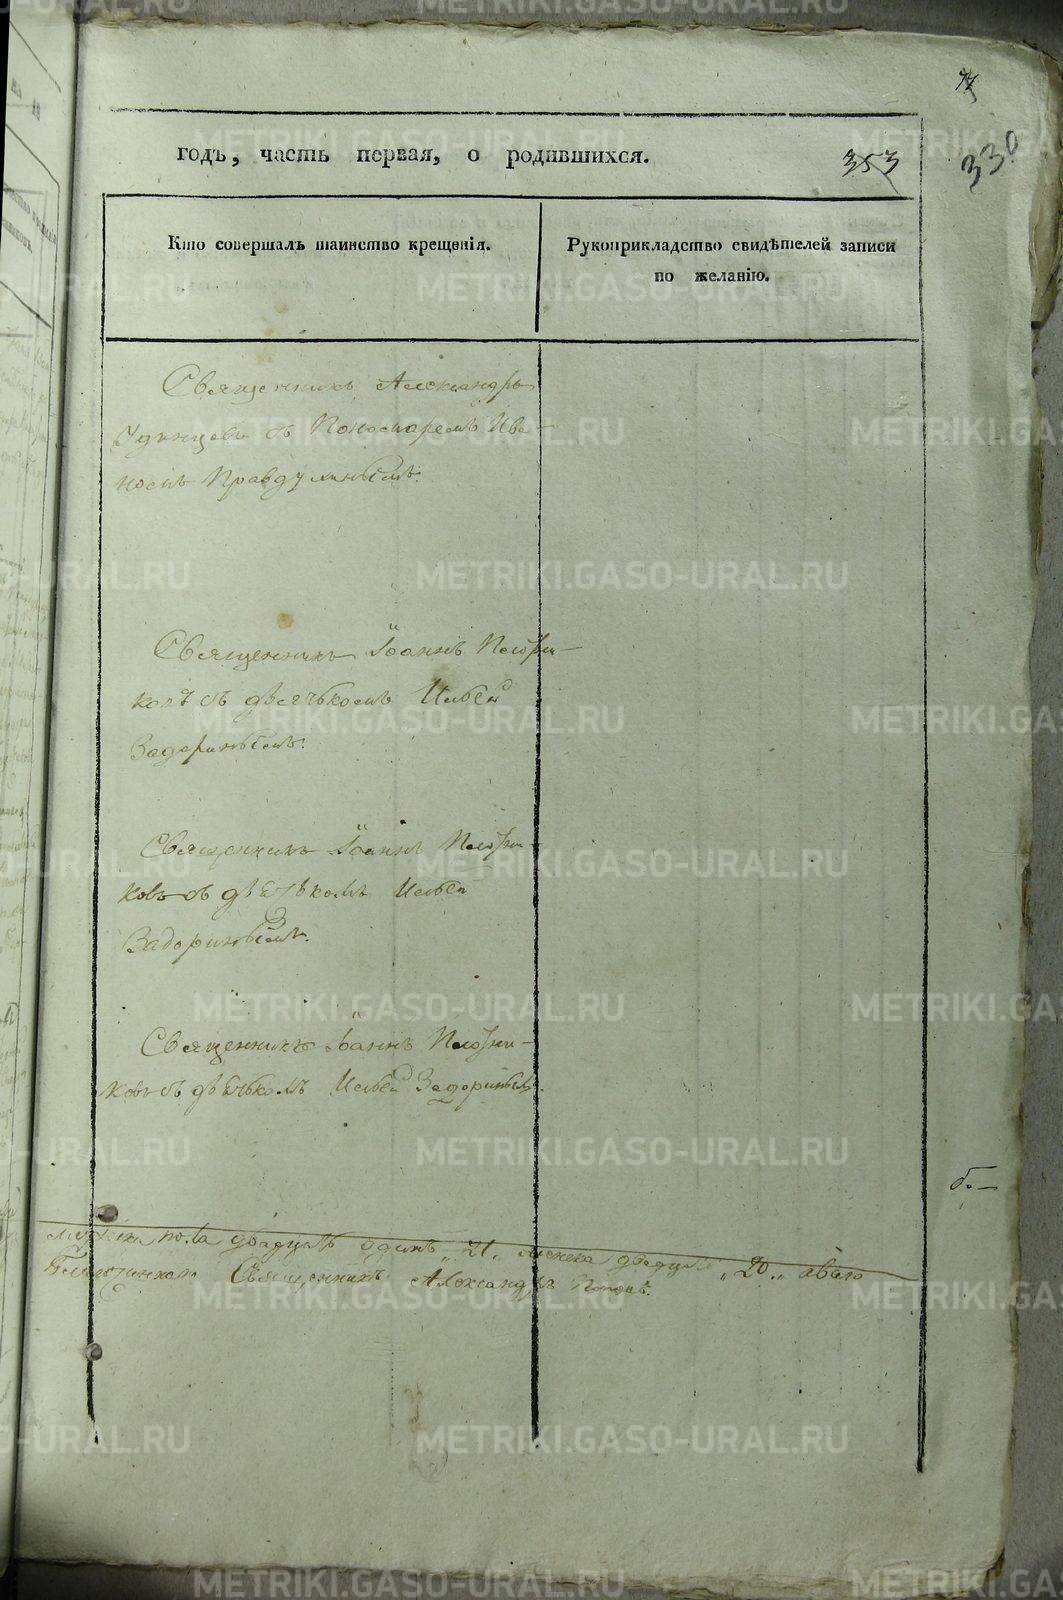 77
годъ, часть первая, о родившихся.
353
330
Кто совершалъ таинство крещенія.
Рукоприкладство свидѣтелей записи
по желанію.
Священникъ Александръ
Удинцевъ съ Пономаремъ Ива-
номъ Правдухинымъ.
Священникъ Іоаннъ Плотни-
ковъ съ дьячькомъ Ильей
Задоринымъ.
Священникъ Іоаннъ Плотни-
ковъ съ дьячькомъ Ильей
Задоринымъ.
Священникъ Іоаннъ Плотни-
ковъ съ дьячькомъ Ильей Задоринымъ.
б.—
пола двадцать одинъ „21„ двадцать „20„
Священникъ Александръ
METRIKI.GASO-URAL.RU